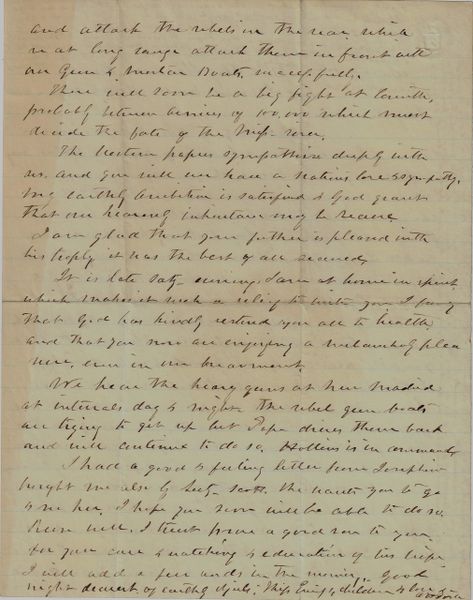 and attack the rebels in the rear, while
we at long range attack them in front with
our Gun & Mortar Boats, successfully.
There will soon be a big fight at Corinth,
probably between armies of 100,000 which must
decide the fate of the Miss. River.
The Western papers sympathise deeply with
us, and you will have a nations love & sympathy.
my earthly ambition is satisfied & God grant
that our heavenly inheritance may be secure
I am glad that your father is pleased with
his trophy it was the best of all secured,
It is late Saty evening, I am at home in spirit,
which makes it such a relief to write you I pray
that God has kindly restored you all to health
and that you now are enjoying a melancholy plea
sure, even in our bereavement.
We hear the heavy guns at New Madrid
at intervals day & night, the rebel gun boats
are trying to get up but Pope drives them back
and will continue to do so. Hollins is in command,
I had a good & feeling letter from Josephine
brought me also by Lieut. Scott. She wants you to go
& see her, I hope you soon will be able to do so.
will, I trust prove a good son to you,
for your care & watching & education of him
I will add a few words in the morning, good
night dearest of earthly objects, Kiss & children & love